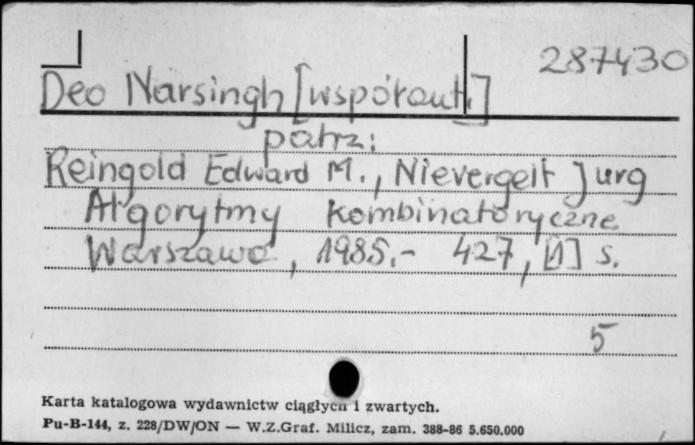 287430
Deo Narsingh [współaut.]
patrz:
Reingold Edward M., Nievergelt Jurg
Algorytmy kombinatoryczne
Warszawa, 1985.- 427, [1] s.
5
Karta katalogowa wydawnictw ciągłych i zwartych.
Pu-B-144, z. 228/DW/ON — W.Z.Graf. Milicz, zam. 388-86 5.650.000